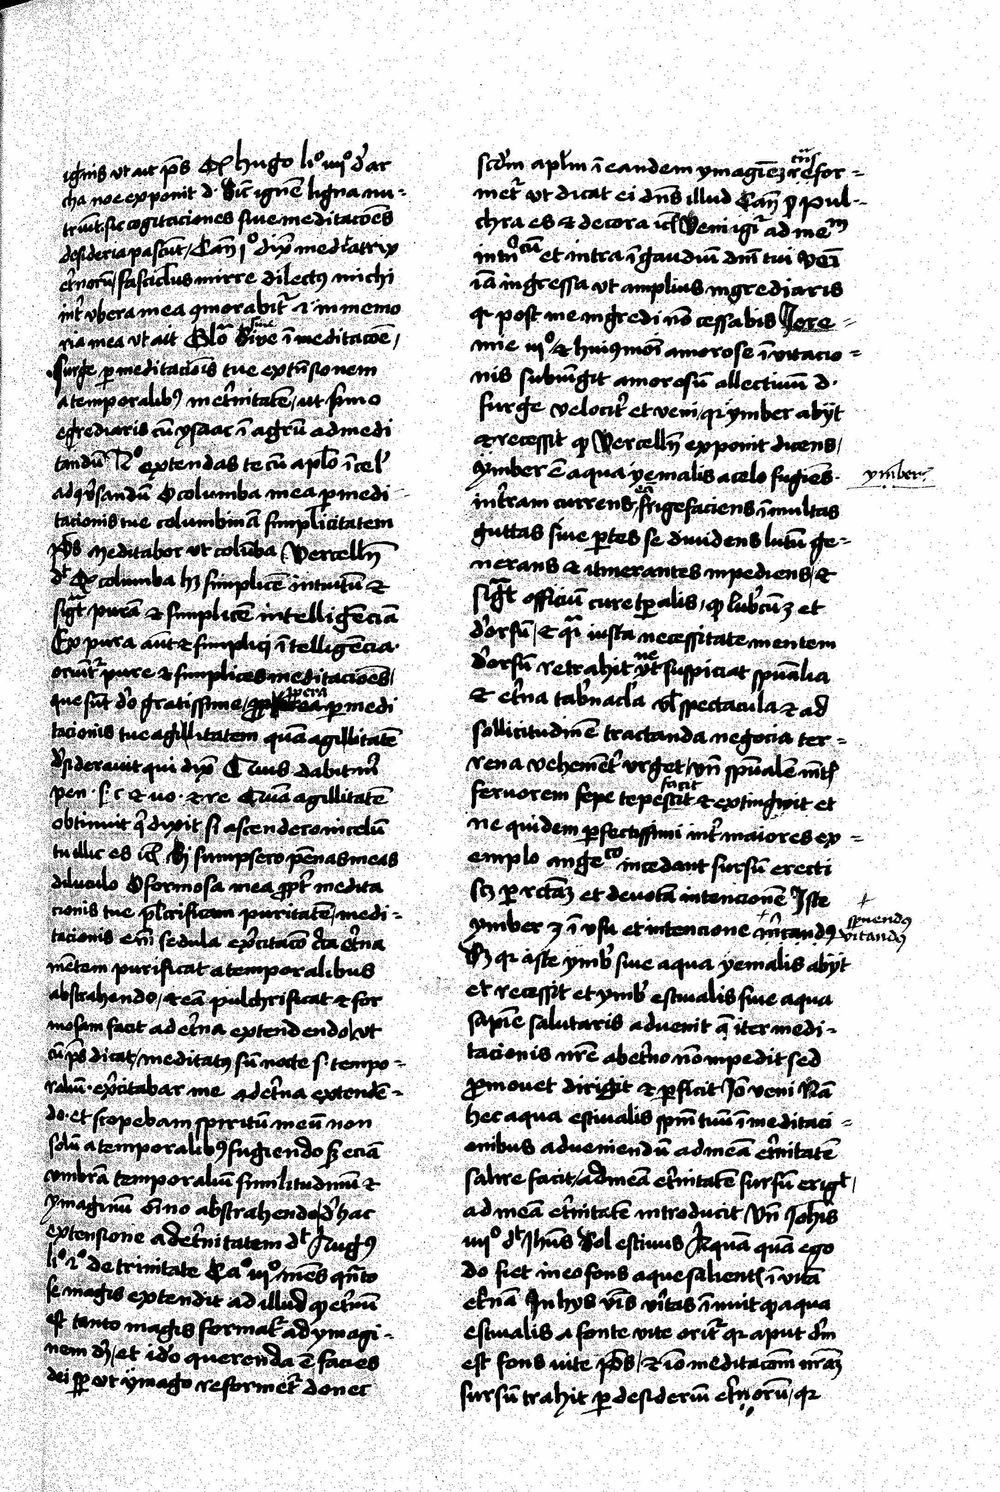 ignis vt ait ps Et hugo li° iiij° d' ar
cha noe exponit d. Sic ignē ligna nu-
triūt sic cogitaciones siue meditacōēs
desideria pascūt Cant̄ j° dix̄ meditatrix
et'norū fasciclus mirre dilectus michi
int' vbera mea 9morabit' et in memo
ria mea vt ait Glō Siue sine ī meditacōe
surge p meditacōis tue extēsionem
a temporalib9 in et'nitatē vt p'mo
egrediaris cū ysaac ī agrū ad medi
tandū 2° extendas te cū aplo ī cel'
ad 9'sandū O columba mea p medi
tacionis tue columbinā simplicitatem
ps Meditabor vt colūba Vercelln̄
dt Et columba hȝ simplicē intuitū et
sigt purā et simplicē intelligēciā
Ex pura aūt et simplici ītelligēcia
oriūt' pure et simplices meditacōēs
que sūt do gratissime propera p medi
tacionis tue agillitatem quā agillitatē
d'siderauit qui dix̄ Quis dabit m'
pen. s. c. et uo. et re Quā agillitatē
obtinuit q' dixit si ascendero in celū
tu illic es it Si sumpsero pēnas meas
diluculo O formosa mea ppt' medita
cionis tue pl'crificam puritatē medi-
tacionis em̄ sedula ex'citacō dca et'na
mētem purificat a temporalibus
abstrahendo et eā pulchrificat et for
mosam facit ad et'na extendendo vt
cū ps dicat meditat9 sū nocte s. tempo-
raliū ex'citabar me ad et'na extendē-
do et scopebam spiritū meū non
solū a temporalib9 fugiendo sȝ eciā
vmbrā temporaliū similitudinū et
ymaginū oīno abstrahendo d' hac
extensione ad et'nitatem dt Hug9
li° 2° de trinitate Ca° iij° mēs qn̄to
se magis extendit ad illud qd et'nū
est tanto magis format' ad ymagi-
nem d'i et ido querenda ē facies
dei spr vt ymago reformet' donec
scd'm aplm ī eandem ymaginēȝ refor-
met' vt dicat ei dn̄s illud Cant̄ p° Pul-
chra es et decora it Veni igr' ad mem
intn° cū et intra ī gaudiū dn̄i tui Veī
iā ingressa vt amplius ingrediaris
qr post me ingredi nō cessabis Jere-
mie iij° et hui9mōi amorose īuitacio-
nis subiūgit amorosū allectiuū d.
surge velocit' et veni qr ymber abijt
et recessit qd Vercelln̄ exponit dicens
ymber ē aqua yemalis a celo fugiēs
in t'ram currens frigefaciens ī multas
guttas siue ptes se diuidens lutū ge-
nerans et itinerantes inpediens et
sigt officiū cure tpalis qd lub'cūȝ et
d'orsū et qn̄ iusta necessitate mentem
d'orsū retrahit ne vt suspiciat spūalia
et et'na tab'nacla vl spectacula et ad
sollicitudinē tractanda negocia ter-
rena vehemēt' vrget vn̄ spūalem int's
feruorem sepe tepescit facit et extingwit et
ne quidem pfectissimi int' maiores ex-
emplo ange co incedant sursū erecti
scȝ p rctāȝ et devotā intencionē Iste
ymber ȝ ī vsu et intencione
Sȝ qr iste ymb' siue aqua yemalis abijt
et recessit et ymb' estiualis siue aqua
sapiē salutaris aduenit q' iter medi-
tacionis nrē ab et'no nō inpedit sed
pmouet dirigit et pficit Iō veni Nā
hec aqua estiualis spm̄ tuū ī meditaci-
onibus adueniendū ad meā et'nitatē
salire facit ad meā et'nitatē sursū erigt
ad meā et'nitatē introducit Vn̄ Joh'is
iiij° dt Jhūs Sol estiuus Aquam quā ego
do fiet in eo fons aque salient̄ ī vitā
et'nā In hys v'bis v'itas īnuit qd aqua
estiualis a fonte vite orit' qr aput d'm
est fons uite ps et iō meditacōm nrāȝ
sursū trahit p desideriū et'norū qr
ymber
spuendū
vitandū